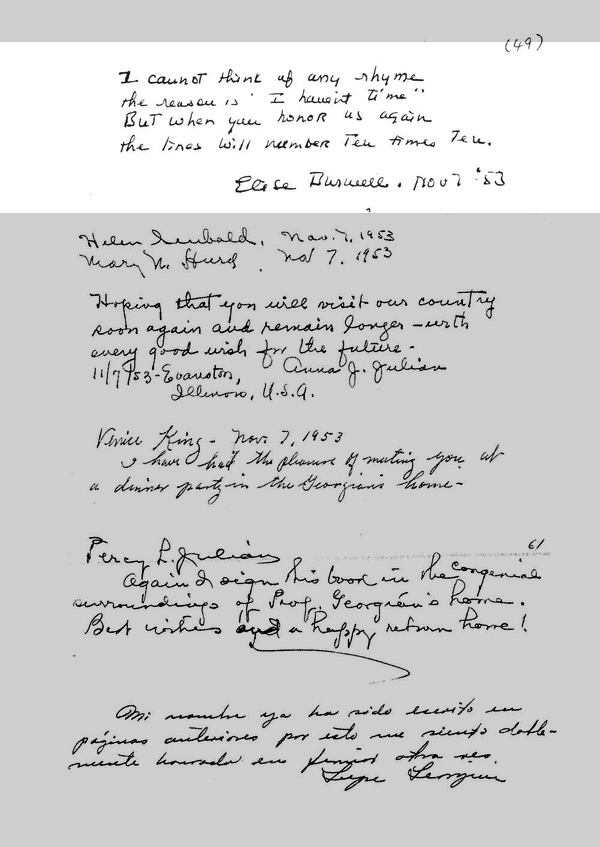 (49)
I cannot think of any rhyme
the reason is "I havent time"
But when you honor us again
the lines will number Ten times Ten.
Elise Burwell. Nov 7 '53
Helen . Nov. 7, 1953
Mary N. Hurd. Nov 7. 1953
Hoping that you will visit our country
soon again and remain longer - with
every good wish for the future -
11/7/53 - Evanston, Anna J. Julian
Illinois, U.S.A.
Venice King - Nov. 7, 1953
I have had the pleasure of meeting you at
a dinner party in the Georgian's home -
61
Percy L. Julian
Again I sign this book in the congenial
surroundings of Prof. Georgián's home.
Best wishes and a happy return home!
Mi nombre ya ha sido escrito en
páginas anteriores por esto me siento doble-
mente honrada en firmar otra ves.
Lupe Georgian